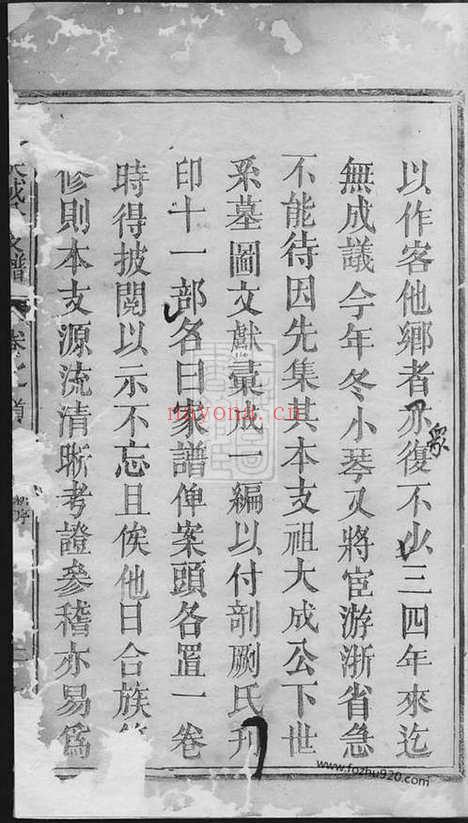 以作客他鄉者亦復不少三四年來迄
衆
無成議今年冬小琴又將宦游浙省急
不能待因先集其本支祖大成公下世
系墓圖文獻彙成一編以付剞劂氏刊
印十一部名曰家譜俾案頭各置一卷
時得披閱以示不忘且俟他日合族
修則本支源流清晰考證參稽亦易爲
支譜
卷之首
nayona.cn
www.fozhu920.com